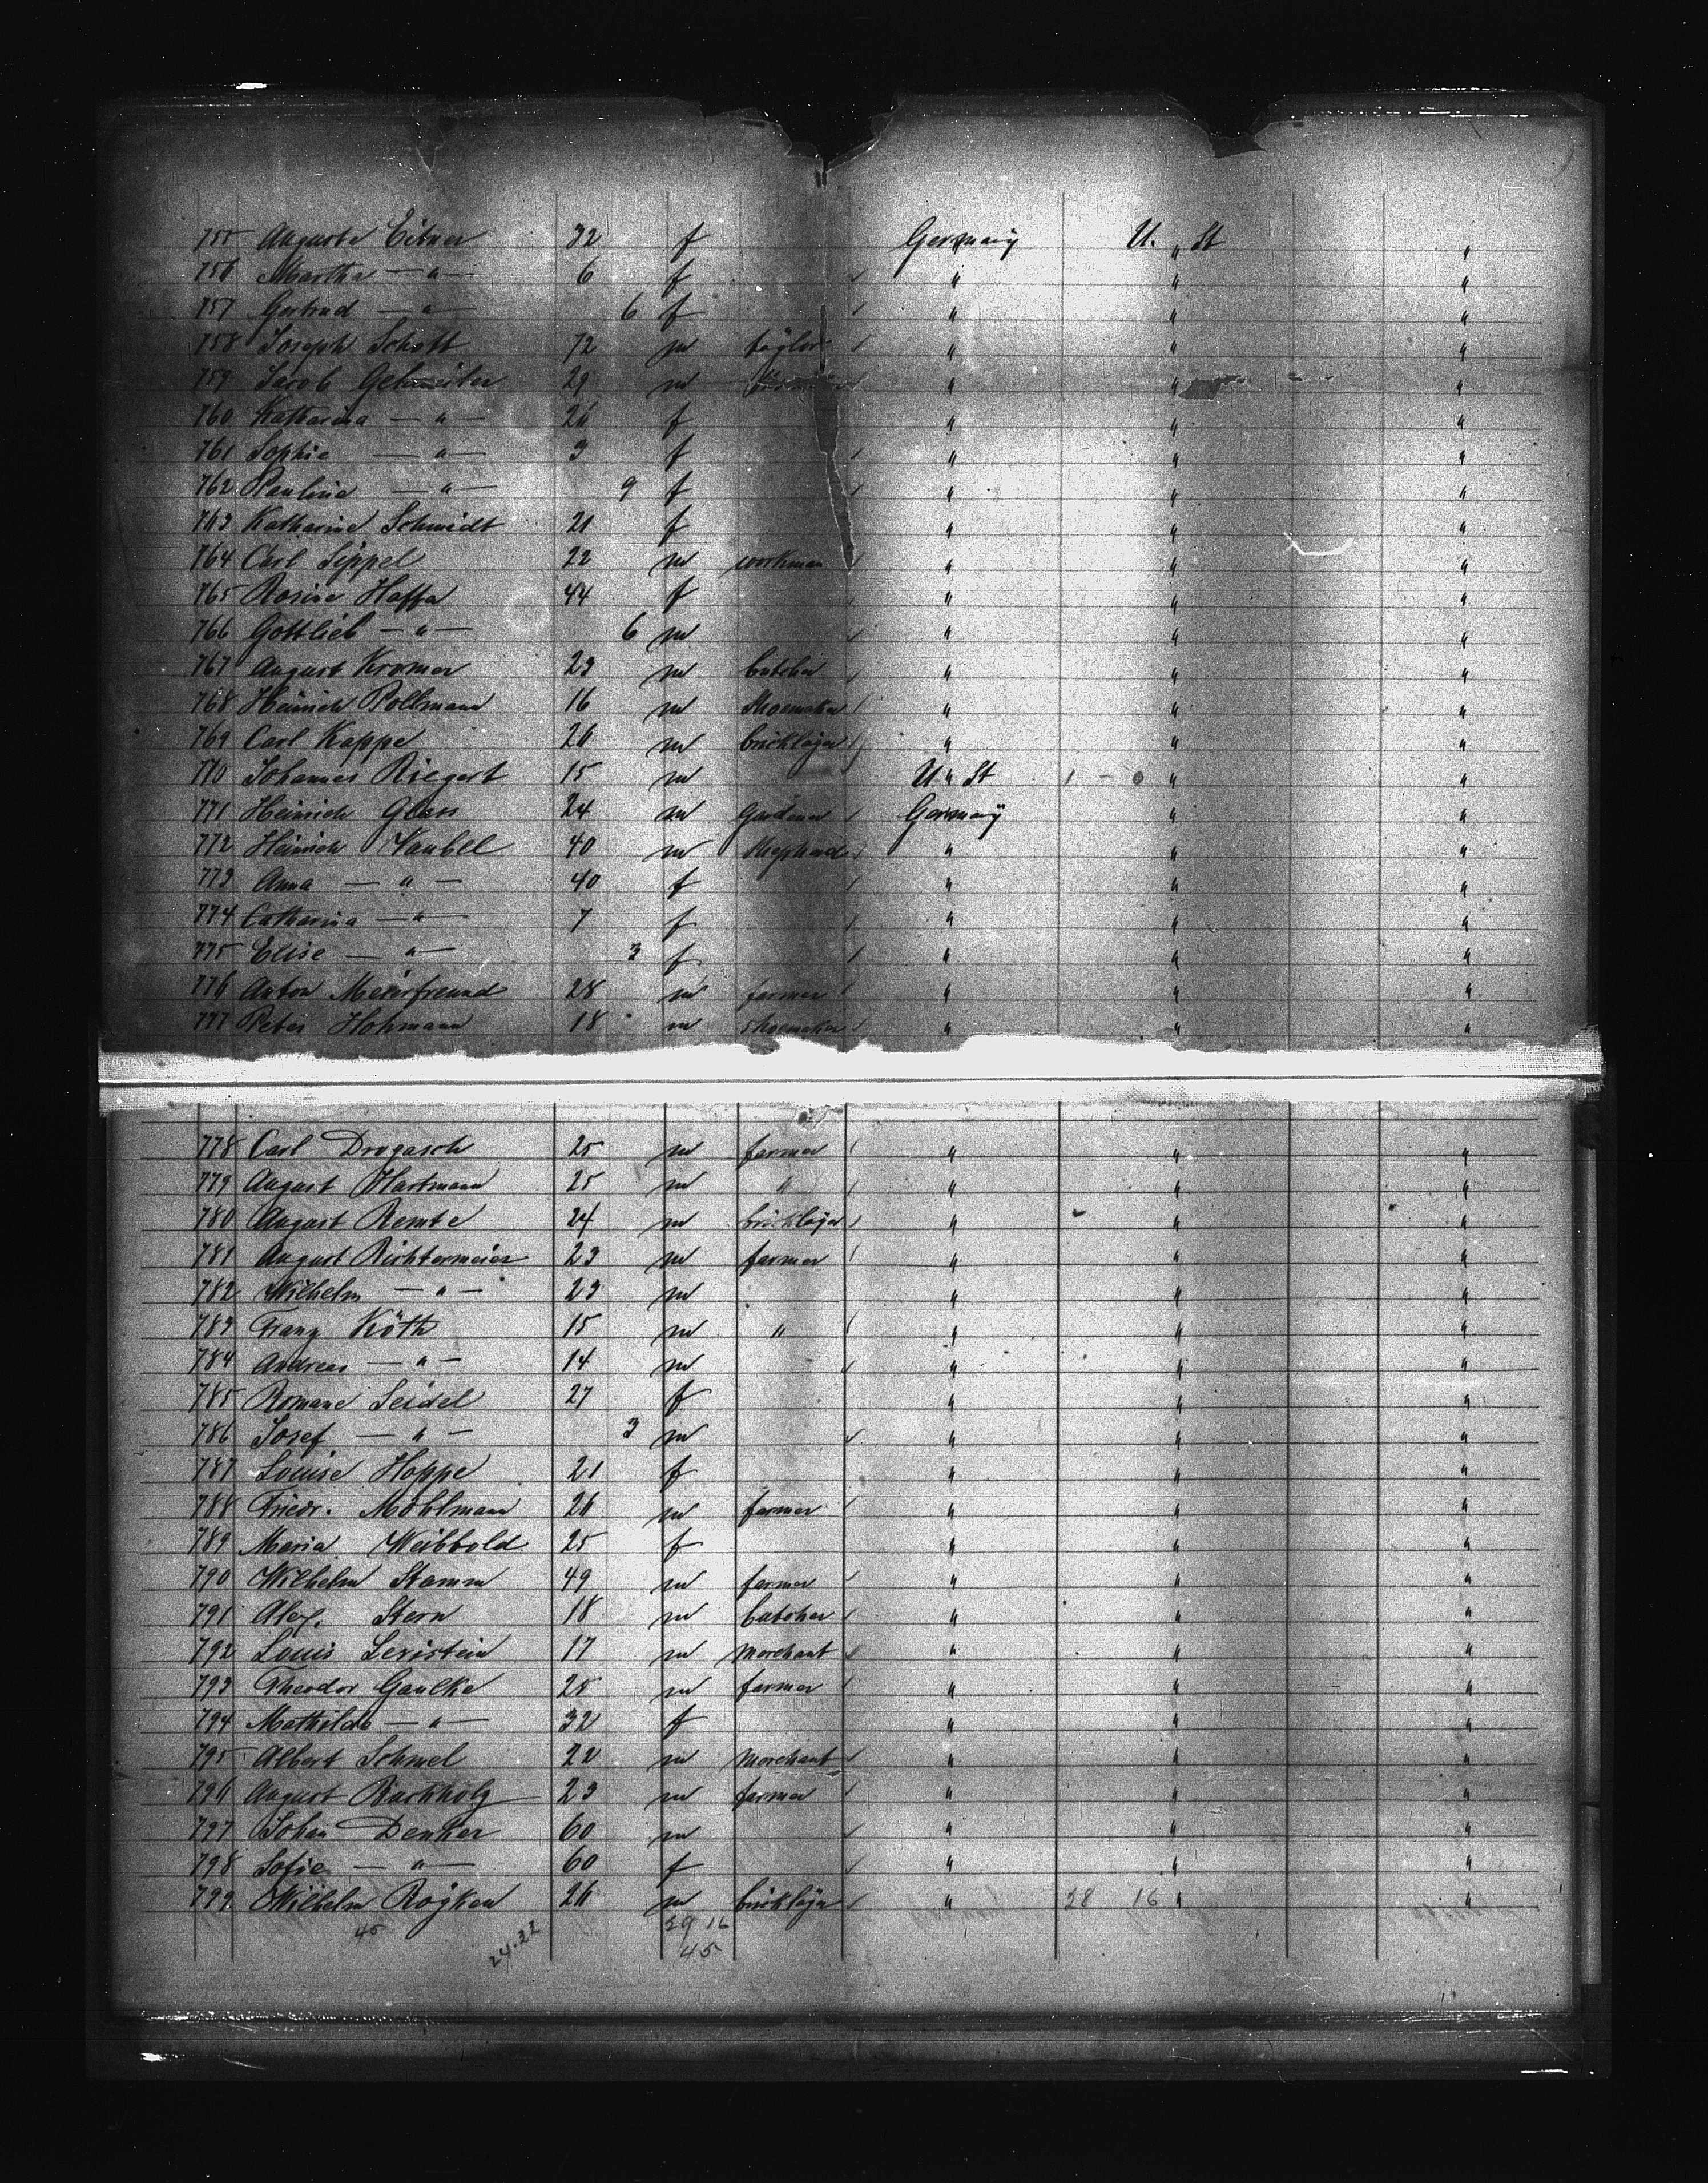 755 Auguste Eitner 32 f Germany U. " St "
756 Martha — " — 6 f " " "
757 Gertrud — " — 6 f " " "
758 Joseph Schott 72 m " " "
759 Jacob 29 m " " "
760 Katharina — " — 26 f " " "
761 Sophie — " — 3 f " " "
762 Pauline — " — 9 f " " "
763 Katharine Schmidt 21 f " " "
764 Carl Sippel 22 m workman " " "
765 Rosine Haffa 44 f " " "
766 Gottlieb — " — 6 m " " "
767 August Kromer 23 m butcher " " "
768 Heinrich Pollmann 16 m Shoemaker " " "
769 Carl Kappe 26 m bricklayer " " "
770 Johannes Riegert 15 m U. " St 1 - 0 " "
771 Heinrich Glass 24 m Gardener Germany " "
772 Heinrich Vaubel 40 m Shepherd " " "
773 Anna — " — 40 f " " "
774 Catharina — " — 7 f " " "
775 Elise — " — 3 f " " "
776 Anton Meierfreund 28 m farmer " " "
777 Peter Hohmann 18 m Shoemaker " " "
778 Carl Drogasch 25 m farmer " " "
779 August Hartmann 25 m " " " "
780 August Remte 24 m bricklayer " " "
781 August Richtermeier 23 m farmer " " "
782 Wilhelm — " — 23 m " " "
783 Franz Köth 15 m " " " "
784 Andreas — " — 14 m " " "
785 Romane Seidel 27 f " " "
786 Josef — " — 3 m " " "
787 Louise Hoppe 21 f " " "
788 Friedr. Möhlmann 26 m farmer " " "
789 Maria Weibbold 25 f " " "
790 Wilhelm Stamm 49 m farmer " " "
791 Alex. Stern 18 m butcher " " "
792 Louis Levistein 17 m Merchant " " "
793 Theodor Gaulke 28 m farmer " " "
794 Mathilde — " — 32 f " " "
795 Albert Schmel 22 m Merchant " " "
796 August Buchholz 23 m farmer " " "
797 Johan Denker 60 m " " "
798 Sofie — " — 60 f " " "
799 Wilhelm Rojken 26 m bricklayer " 28 16 " "
45 24.22 29 16
45